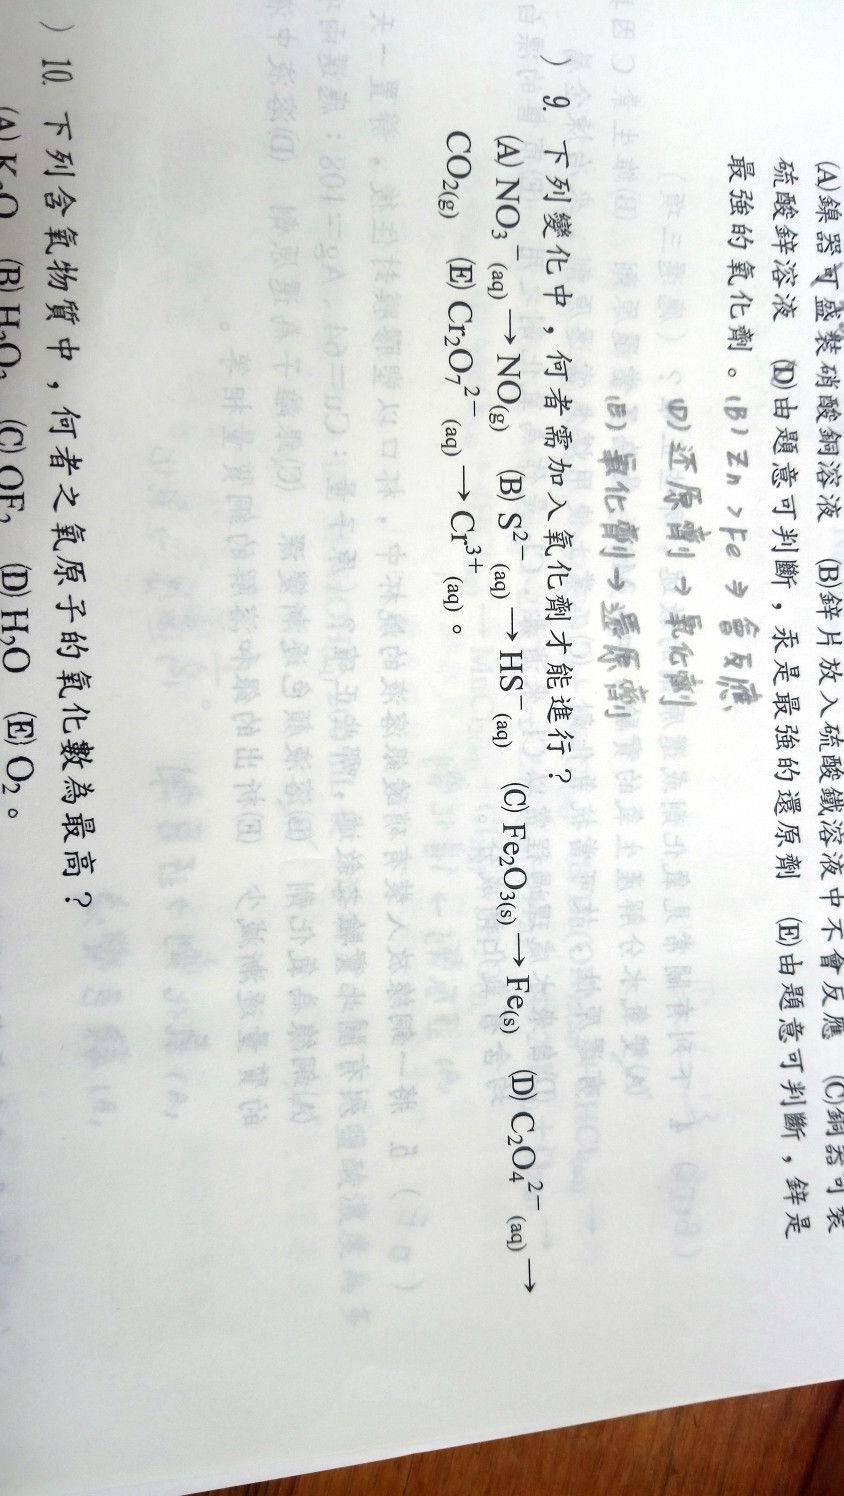 (A)鎳器可盛裝硝酸銅溶液 (B)鋅片放入硫酸鐵溶液中不會反應 (C)銅器可裝
硫酸鋅溶液 (D)由題意可判斷，汞是最強的還原劑 (E)由題意可判斷，鋅是
最強的氧化劑。(B) Zn > Fe → 會反應
(D) 还原劑 → 氧化劑
(E) 氧化劑 → 還原劑
) 9. 下列變化中，何者需加入氧化劑才能進行？
(A) NO₃⁻(aq) → NO(g) (B) S²⁻(aq) → HS⁻(aq) (C) Fe₂O₃(s) → Fe(s) (D) C₂O₄²⁻(aq) →
CO₂(g) (E) Cr₂O₇²⁻(aq) → Cr³⁺(aq)。
) 10. 下列含氧物質中，何者之氧原子的氧化數為最高？
(A) K₂O (B) H₂O₂ (C) OF₂ (D) H₂O (E) O₂。